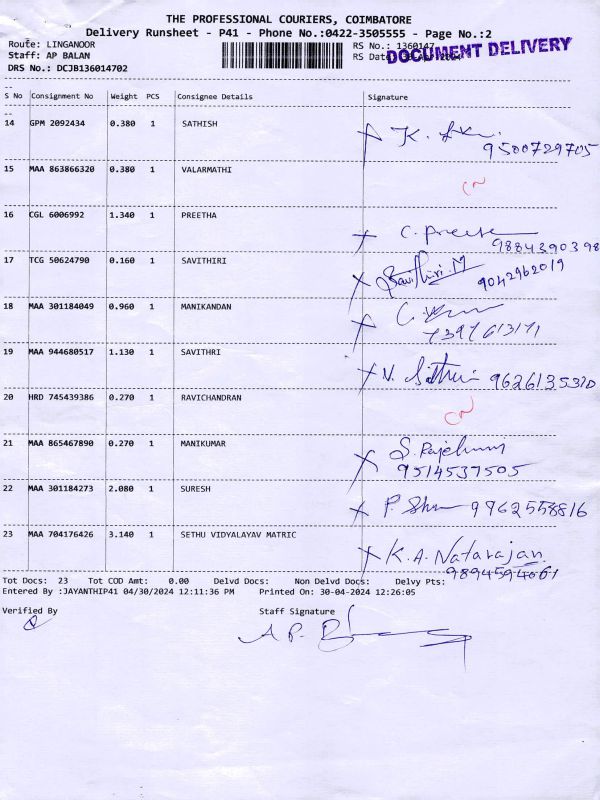 THE PROFESSIONAL COURIERS, COIMBATORE
Delivery Runsheet - P41 - Phone No.:0422-3505555 - Page No.:2
Route: LINGANOOR
Staff: AP BALAN
DRS No.: DCJB136014702
RS No.: 1360147
RS Date
DOCUMENT DELIVERY
S No Consignment No Weight PCS Consignee Details Signature
14 GPM 2092434 0.380 1 SATHISH K.
9500729705
15 MAA 863866320 0.380 1 VALARMATHI CN
16 CGL 6006992 1.340 1 PREETHA C. Preetha
9884390398
17 TCG 50624790 0.160 1 SAVITHIRI Savithiri.M 9042962019
18 MAA 301184049 0.960 1 MANIKANDAN
7397613171
19 MAA 944680517 1.130 1 SAVITHRI N. 9626135310
20 HRD 745439386 0.270 1 RAVICHANDRAN CN
21 MAA 865467890 0.270 1 MANIKUMAR S.
9514537505
22 MAA 301184273 2.080 1 SURESH P. 9962558816
23 MAA 704176426 3.140 1 SETHU VIDYALAYAV MATRIC K.A. Natarajan
9894594061
Tot Docs: 23 Tot COD Amt: 0.00 Delvd Docs: Non Delvd Docs: Delvy Pts:
Entered By :JAYANTHIP41 04/30/2024 12:11:36 PM Printed On: 30-04-2024 12:26:05
Verified By Staff Signature
A P.